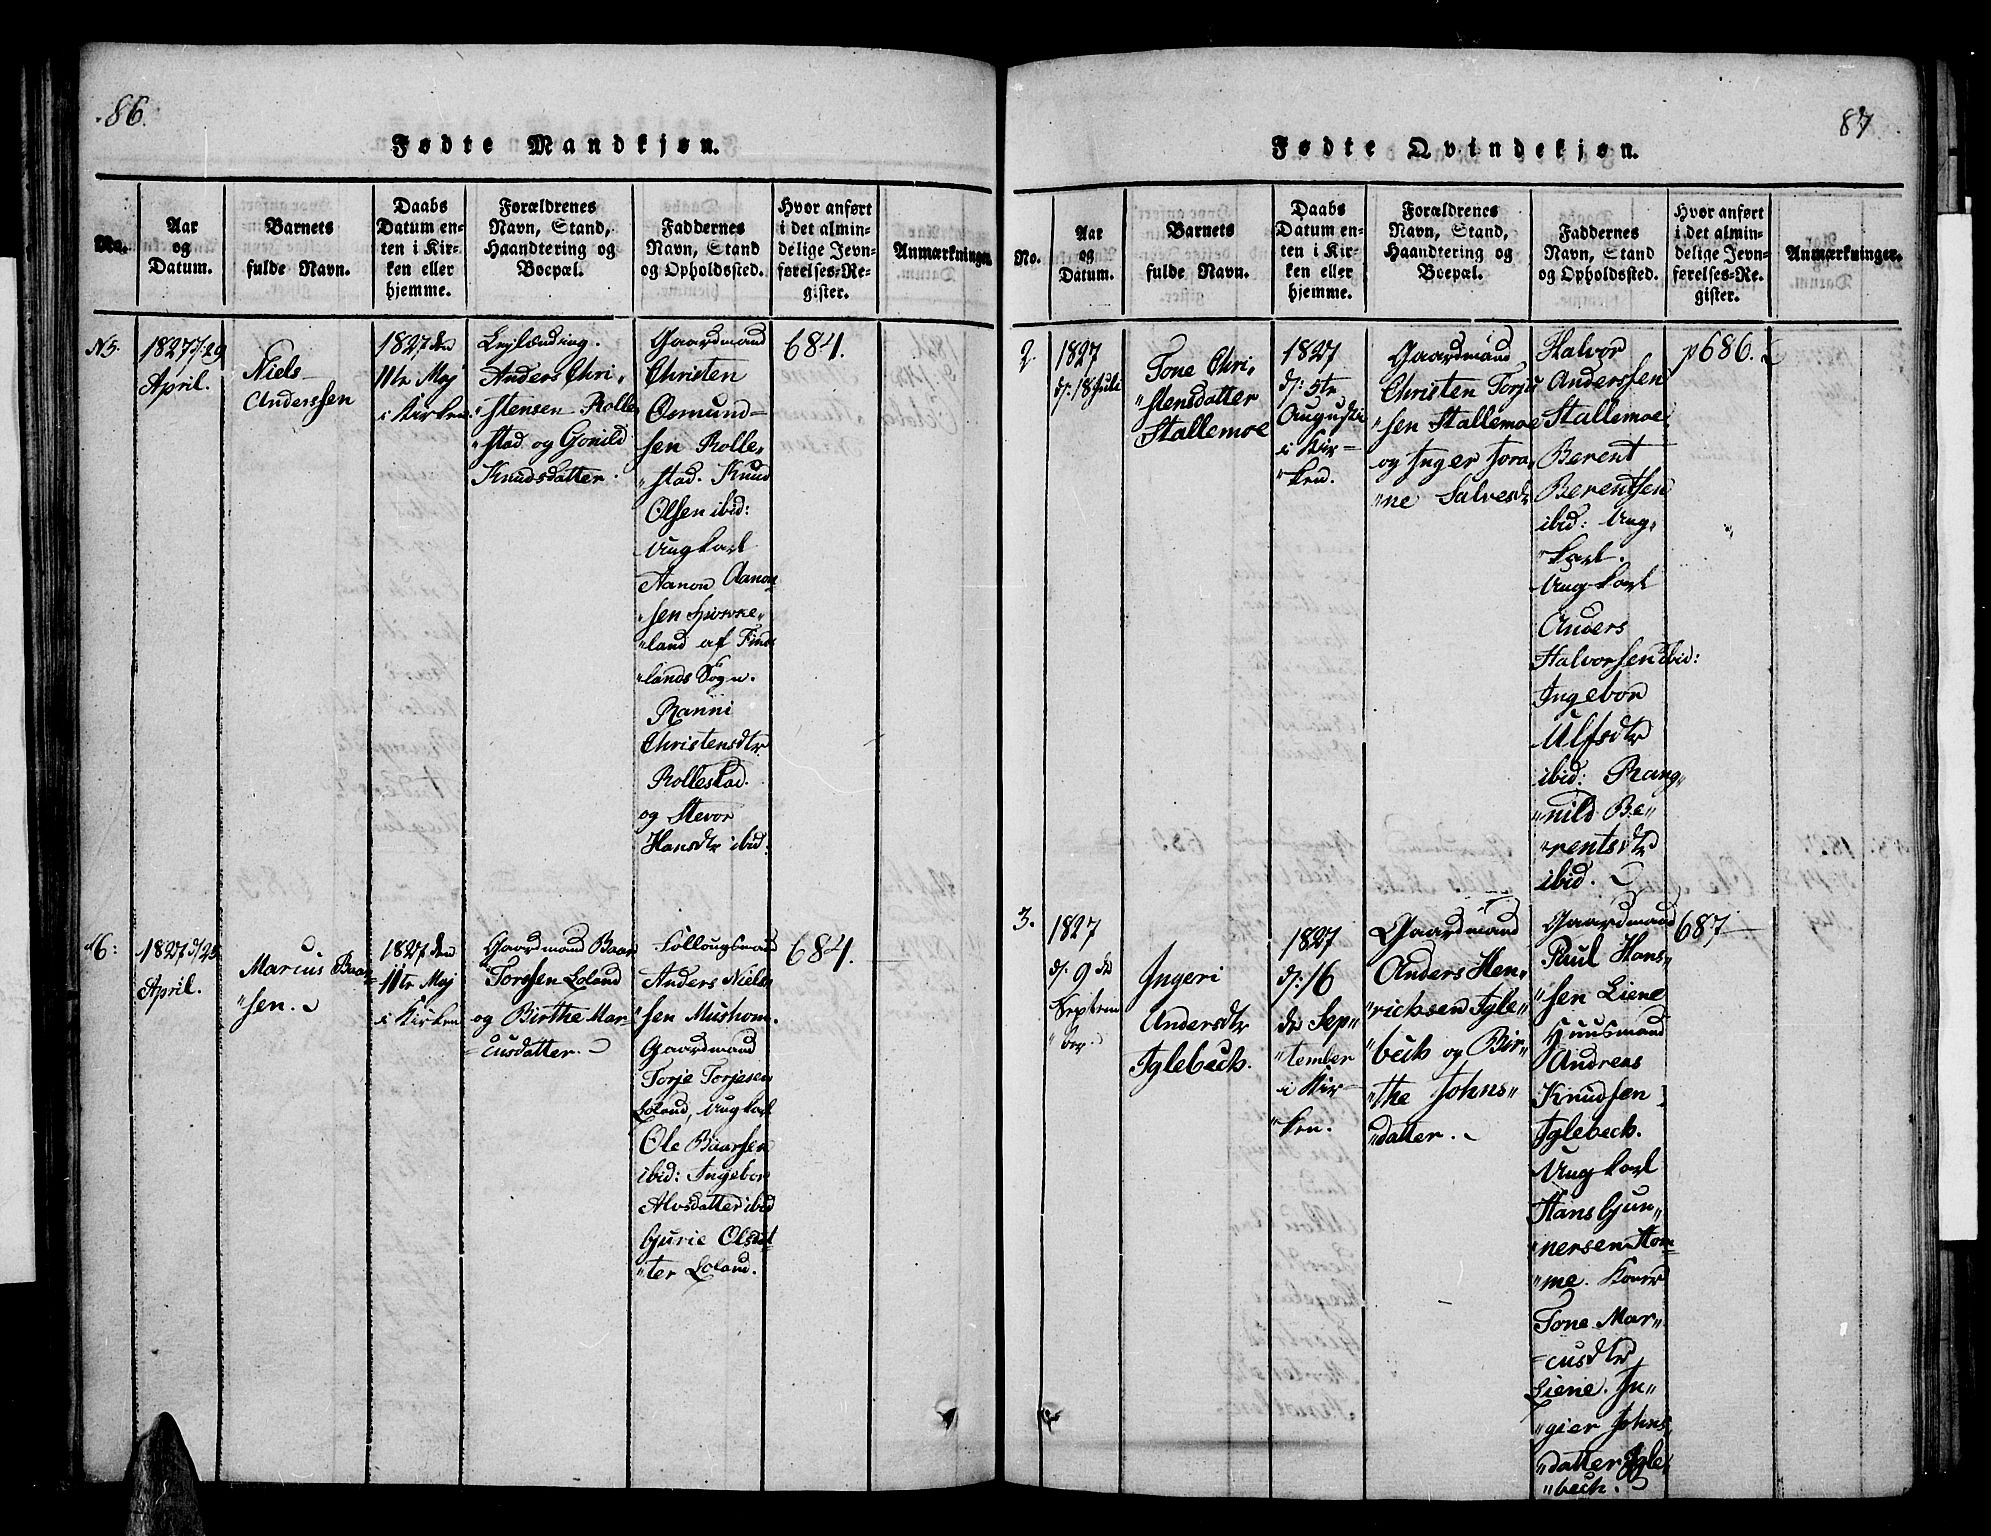 86.
Fødte Mandkjøn.
No.
Aar
og
Datum.
Barnets
fulde Navn.
Daabs
Datum en-
ten i Kir-
ken eller
hjemme.
Forældrenes
Navn, Stand,
Haandtering og
Boepæl.
Faddernes
Navn, Stand
og Opholdssted.
Hvor anført
i det almin-
delige Jevn-
førelses-Re-
gister.
Anmærkninger.
N 5.
1827 d: 29
April.
Niels
Anderssen
1827 den
11te Maj
i Kirken
Leylænding.
Anders Chri„
„stensen Rolle„
„stad og Gonild
Knudsdatter.
Gaardmand
Christen
Osmund=
sen Rolle„
„stad. Knud
Olsen ibid:
Ungkarl
Aanon Aanon
„sen
„land af Find
„lands Sogn.
Ranni
Christensdtr
Rollestad.
og Stevor
Hansdtr ibid.
684.
6:
1827 d: 25
April.
Marcius Baar
„sen.
1827 den
11te Maj
i Kirken
Gaardmand Baar
Torssen Loland
og Birthe Mar„
=cusdatter.
Anders Niels
sen Mushom.
Gaardmand
Torje Torjesen
Loland, Ungkarl
Ole Baarsen
ibid: Ingebor
Alvsdatter ibid
Gjurie Olsdat=
„ter Loland.
684.
87
Fødte Qvindekjøn.
No.
Aar
og
Datum.
Barnets
fulde Navn.
Daabs
Datum en-
ten i Kir-
ken eller
hjemme.
Forældrenes
Navn, Stand,
Haandtering og
Boepæl.
Faddernes
Navn, Stand
og Opholdssted.
Hvor anført
i det almin-
delige Jevn-
førelses-Re-
gister.
Anmærkninger.
2.
1827
d: 18 Juli
Tone Chri„
„stensdatter
Stallemoe
1827
d: 5te
Augusti
i Kir=
„ken.
Gaardmand
Christen Torju
„sen Stallemoe
og Inger Jora„
„ne Salvesdtr
Halvor
Anderssen
Stallemoe.
Berent
Berentsen
ibid: Ung„
„karl.
Ungkarl
Anders
Halvorsen ibid:
Ingebor
Ulfsdtr
ibid: Rang„
„nild Be„
„rentsdtr
ibid.
p686.
3.
1827
d: 9de
Septem
„ber.
Ingeri
Andersdtr
Iglebech.
1827
d: 16
de Sep„
„tember
i Kir=
„ken.
Gaardmand
Anders Hen„
„richsen Igle„
„bech og Bir„
„the Johns„
„datter.
Gaardmand
Paul Hans„
„sen Liene
Huusmand
Andreas
Knudsen
Iglebech.
Ungkarl
Hans Gjun„
„nersen Hom=
„me. Kone
Tone Mar„
=cusdtr
Liene. In„
„gier Johns„
„datter Igle„
„bech.
687